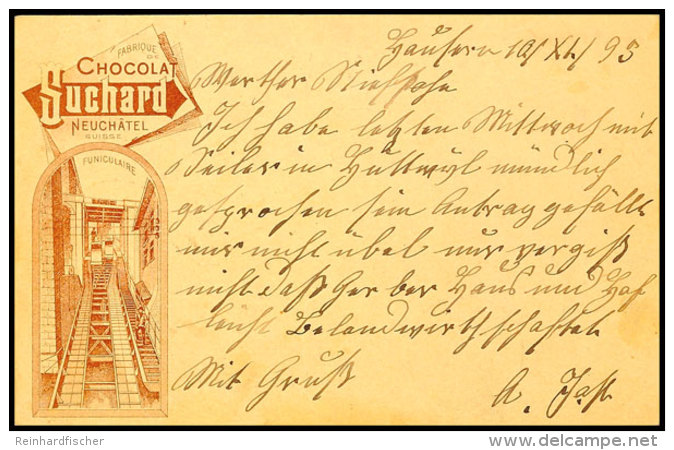 FABRIQUE
DE
CHOCOLAT
Suchard
NEUCHÂTEL
SUISSE
FUNICULAIRE
Häusern 10/XI./95
Werther Stiefsohn
Ich habe letzten Mittwoch mit
Seiler in Huttwyl mündlich
gesprochen sein Antrag gefällt
mir nicht übel nur vergiß
nicht daß Haus und Hof
Mit Gruß
A.
Reinhardfischer
www.delcampe.net